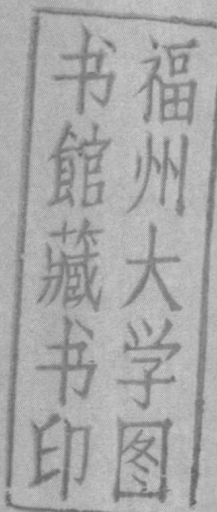 福州大学图
书館藏书印